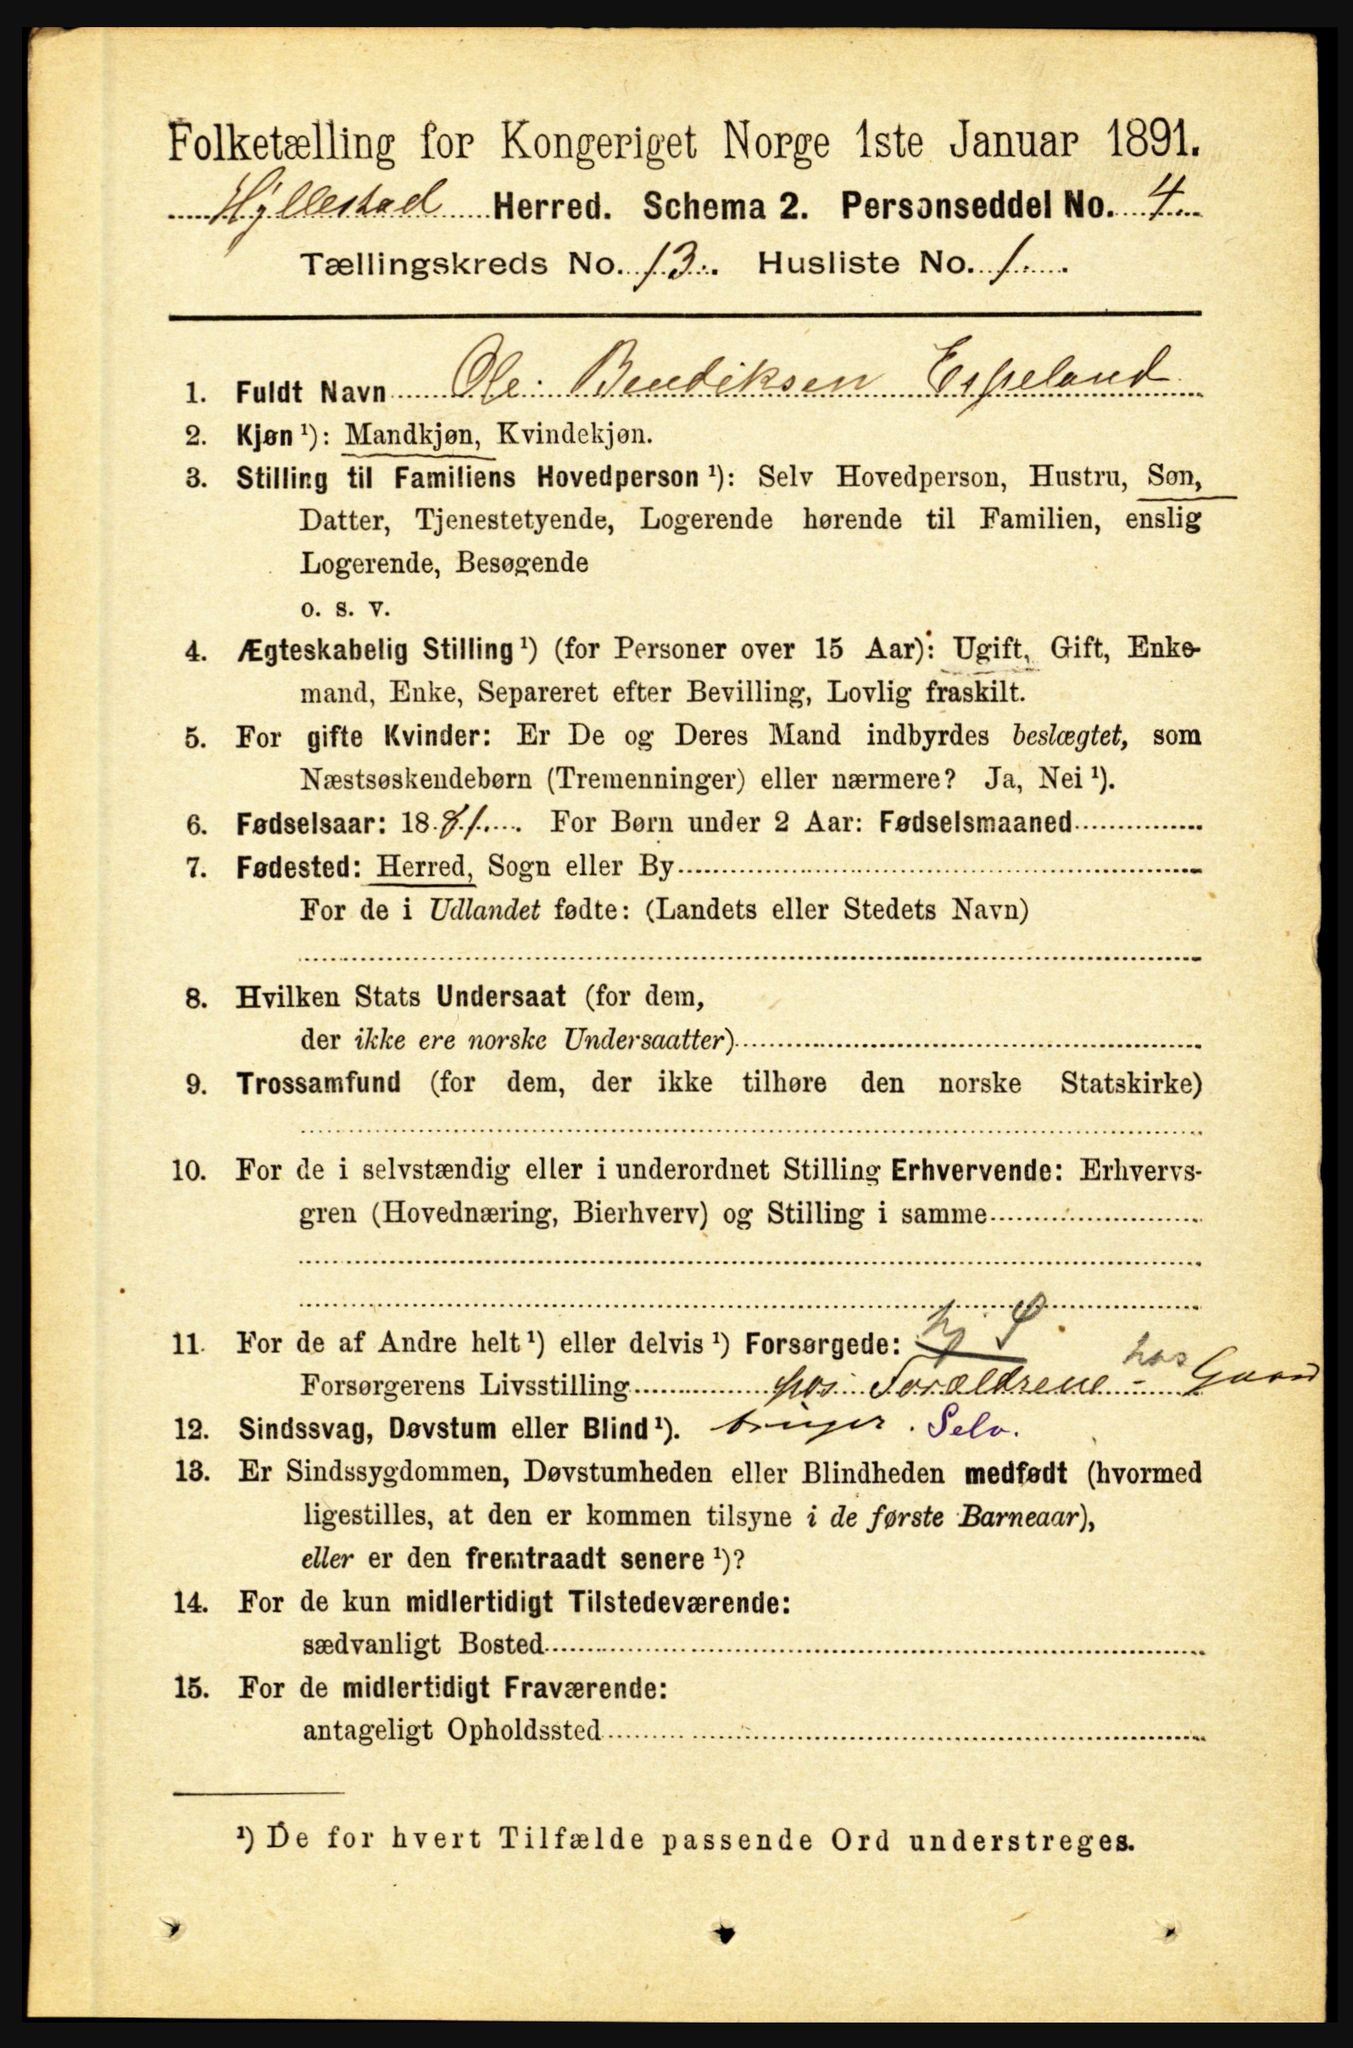 Folketælling for Kongeriget Norge 1ste Januar 1891.
Hyllestad Herred. Schema 2. Personseddel No. 4
Tællingskreds No. 13. Husliste No. 1.
1. Fuldt Navn Ole Bendiksen Espeland
2. Kjøn ¹): Mandkjøn, Kvindekjøn.
3. Stilling til Familiens Hovedperson ¹): Selv Hovedperson, Hustru, Søn,
Datter, Tjenestetyende, Logerende hørende til Familien, enslig
Logerende, Besøgende
o. s. v.
4. Ægteskabelig Stilling ¹) (for Personer over 15 Aar): Ugift, Gift, Enke-
mand, Enke, Separeret efter Bevilling, Lovlig fraskilt.
5. For gifte Kvinder: Er De og Deres Mand indbyrdes beslægtet, som
Næstsøskendebørn (Tremenninger) eller nærmere? Ja, Nei ¹).
6. Fødselsaar: 1881. For Børn under 2 Aar: Fødselsmaaned
7. Fødested: Herred, Sogn eller By
For de i Udlandet fødte: (Landets eller Stedets Navn)
8. Hvilken Stats Undersaat (for dem,
der ikke ere norske Undersaatter)
9. Trossamfund (for dem, der ikke tilhøre den norske Statskirke)
10. For de i selvstændig eller i underordnet Stilling Erhvervende: Erhvervs-
gren (Hovednæring, Bierhverv) og Stilling i samme
11. For de af Andre helt ¹) eller delvis ¹) Forsørgede:
Forsørgerens Livsstilling hos Forældrene - hos Gaard
12. Sindssvag, Døvstum eller Blind ¹). bruger. Selv.
13. Er Sindssygdommen, Døvstumheden eller Blindheden medfødt (hvormed
ligestilles, at den er kommen tilsyne i de første Barneaar),
eller er den fremtraadt senere ¹)?
14. For de kun midlertidigt Tilstedeværende:
sædvanligt Bosted
15. For de midlertidigt Fraværende:
antageligt Opholdssted
¹) De for hvert Tilfælde passende Ord understreges.